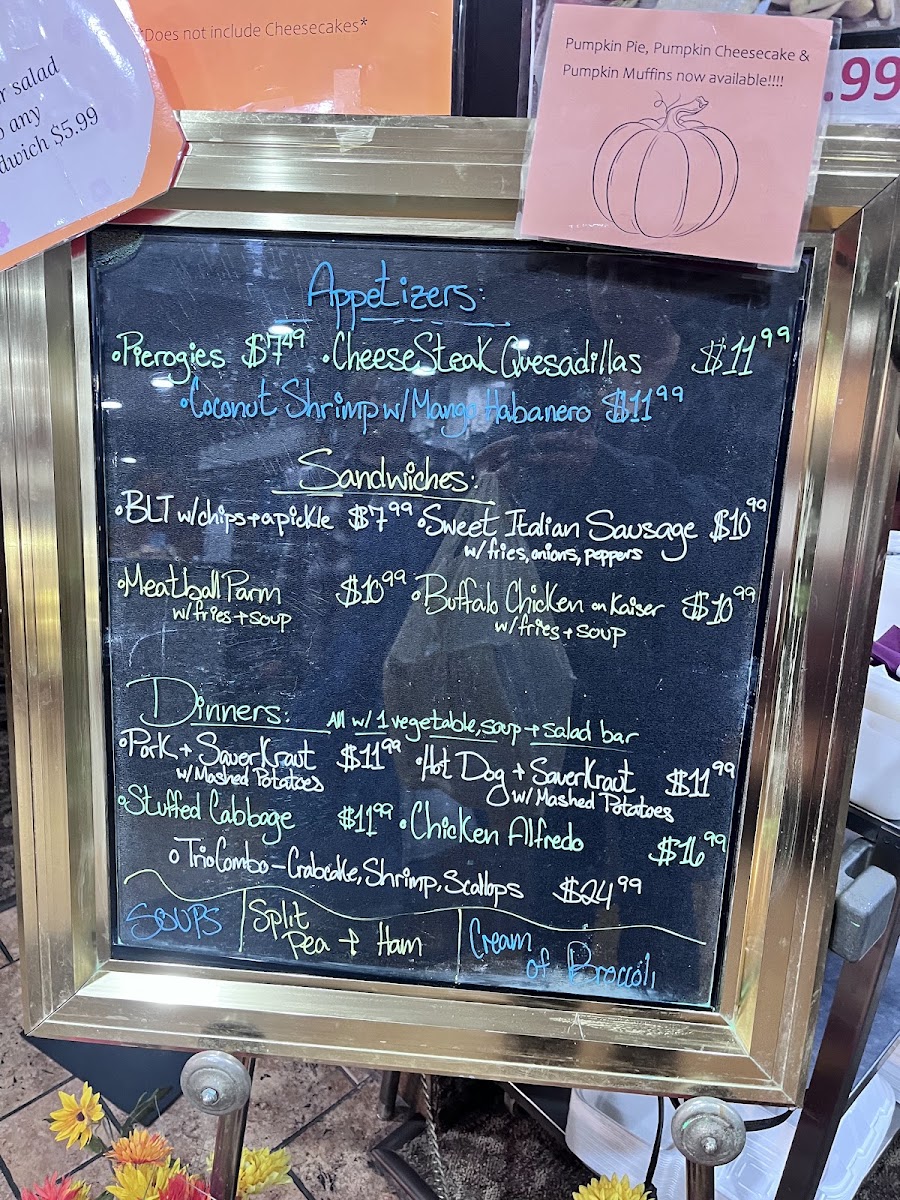 *Does not include Cheesecakes*
r salad
o any
dwich $5.99
Pumpkin Pie, Pumpkin Cheesecake &
Pumpkin Muffins now available!!!!
.99
Appetizers:
•Pierogies $7.49 •CheeseSteak Quesadillas $11.99
•Coconut Shrimp w/Mango Habanero $11.99
Sandwiches:
•BLT w/chips+a pickle $7.99 •Sweet Italian Sausage $10.99
w/fries, onions, peppers
•Meatball Parm $10.99 •Buffalo Chicken on Kaiser $10.99
w/fries+soup w/fries+soup
Dinners: All w/1 vegetable, soup + salad bar
•Pork + SauerKraut $11.99 •Hot Dog + SauerKraut $11.99
w/Mashed Potatoes w/Mashed Potatoes
•Stuffed Cabbage $11.99 •Chicken Alfredo $16.99
•Trio Combo-Crabcake, Shrimp, Scallops $24.99
SOUPS Split Pea + Ham Cream of Broccoli